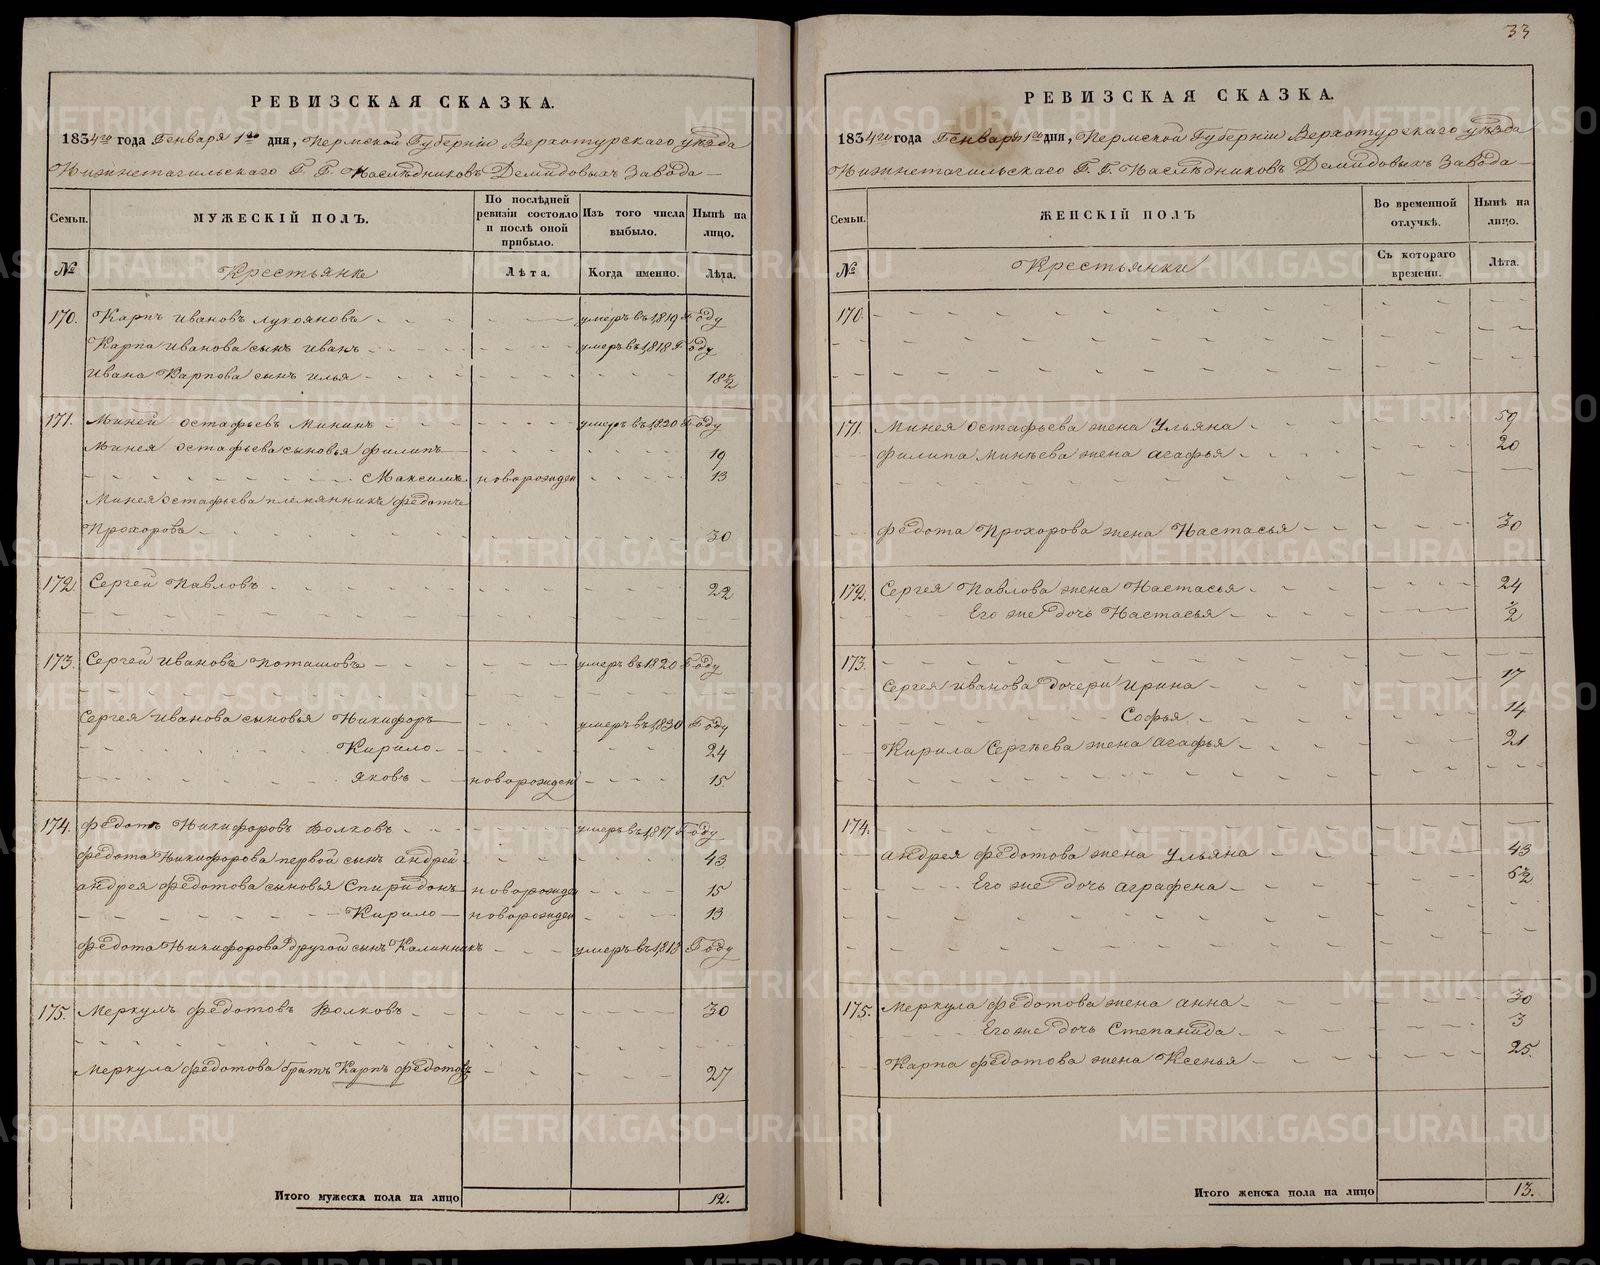 33
РЕВИЗСКАЯ СКАЗКА.
1834го года Генваря 1го дня, Пермской Губернiи Верхотурскаго уѣзда
Нижнетагильскаго Г. Г. Наслѣдниковъ Демидовыхъ Завода
Семьи. МУЖЕСКIЙ ПОЛЪ. По послѣдней ревизiи состояло и послѣ оной прибыло. Изъ того числа выбыло. Нынѣ на лицо.
№ Крестьяне Лѣта. Когда именно. Лѣта.
170. Карпъ Ивановъ Лукояновъ умеръ въ 1819 Году
Карпа Иванова сынъ Иванъ умеръ въ 1818 Году
Ивана Карпова сынъ Илья 18½
171. Миней Остафьевъ Мининъ умеръ въ 1820 Году
Минея Остафьева сыновья Филипъ 19
Максимъ новорожден 13
Минея Остафьева племянникъ Федотъ
Прохоровъ 30
172. Сергей Павловъ 22
173. Сергей Ивановъ Поташовъ умеръ въ 1820 Году
Сергея Иванова сыновья Никифоръ умеръ въ 1830 Году
Кирило 24
Яковъ новорожден 15
174. Федотъ Никифоровъ Волковъ умеръ въ 1817 Году
Федота Никифорова первой сынъ Андрей 43
Андрея Федотова сыновья Спиридонъ новорожден 15
Кирило новорожден 13
Федота Никифорова другой сынъ Калинникъ умеръ въ 1818 Году
175. Меркулъ Федотовъ Волковъ 30
Меркула Федотова братъ Карпъ Федотовъ 27
Итого мужеска пола на лицо 12.
РЕВИЗСКАЯ СКАЗКА.
1834го года Генваря 1го дня, Пермской Губернiи Верхотурскаго уѣзда
Нижнетагильскаго Г. Г. Наслѣдниковъ Демидовыхъ Завода
Семьи. ЖЕНСКIЙ ПОЛЪ Во временной отлучкѣ. Нынѣ на лицо.
№ Крестьянки Съ котораго времени. Лѣта.
170.
171. Минея Остафьева жена Ульяна 59
Филипа Минѣева жена Агафья 20
Федота Прохорова жена Настасья 30
172. Сергея Павлова жена Настасья 24
Его же дочь Настасья ½
173.
Сергея Иванова дочери Ирина 17
Софья 14
Кирила Сергѣева жена Агафья 21
174.
Андрея Федотова жена Ульяна 43
Его же дочь Аграфена 6½
175. Меркула Федотова жена Анна 30
Его же дочь Степанида 3
Карпа Федотова жена Ксенья 25.
Итого женска пола на лицо 13.
METRIKI.GASO-URAL.RU